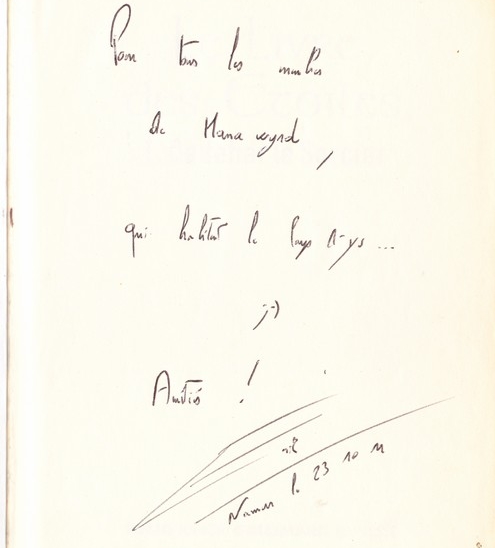 Pour tous les membres
de Mana wyrd,
qui habitent le Pays d'Ys ...
;-)
Amitiés !
Namur le 23 10 11